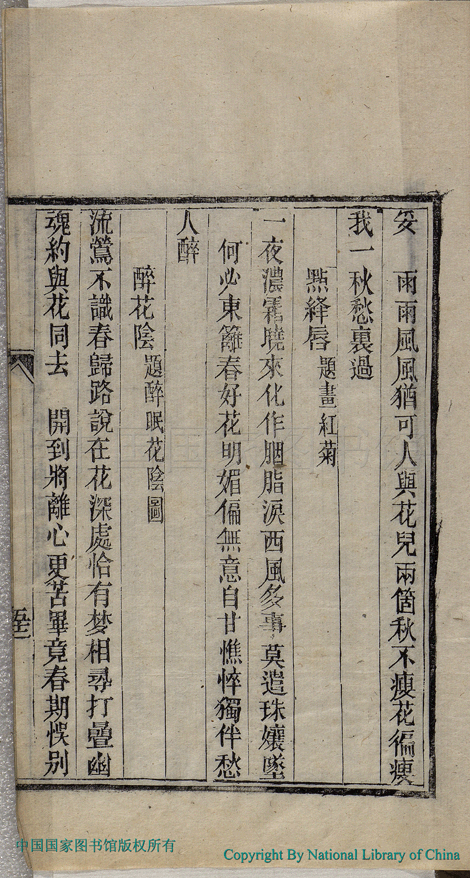 妥　雨雨風風猶可人與花兒兩箇秋不瘦花徧瘦
我一秋愁裏過
點絳唇題畫紅菊
一夜濃霜曉來化作胭脂淚西風多事莫遣珠孃墜
何必東籬春好花明媚偏無意自甘憔悴獨伴愁
人醉
醉花陰題醉眠花陰圖
流鶯不識春歸路說在花深處恰有梦相尋打疊幽
魂約與花同去　開到將離心更苦畢竟春期悞别
中国国家图书馆版权所有
Copyright By National Library of China